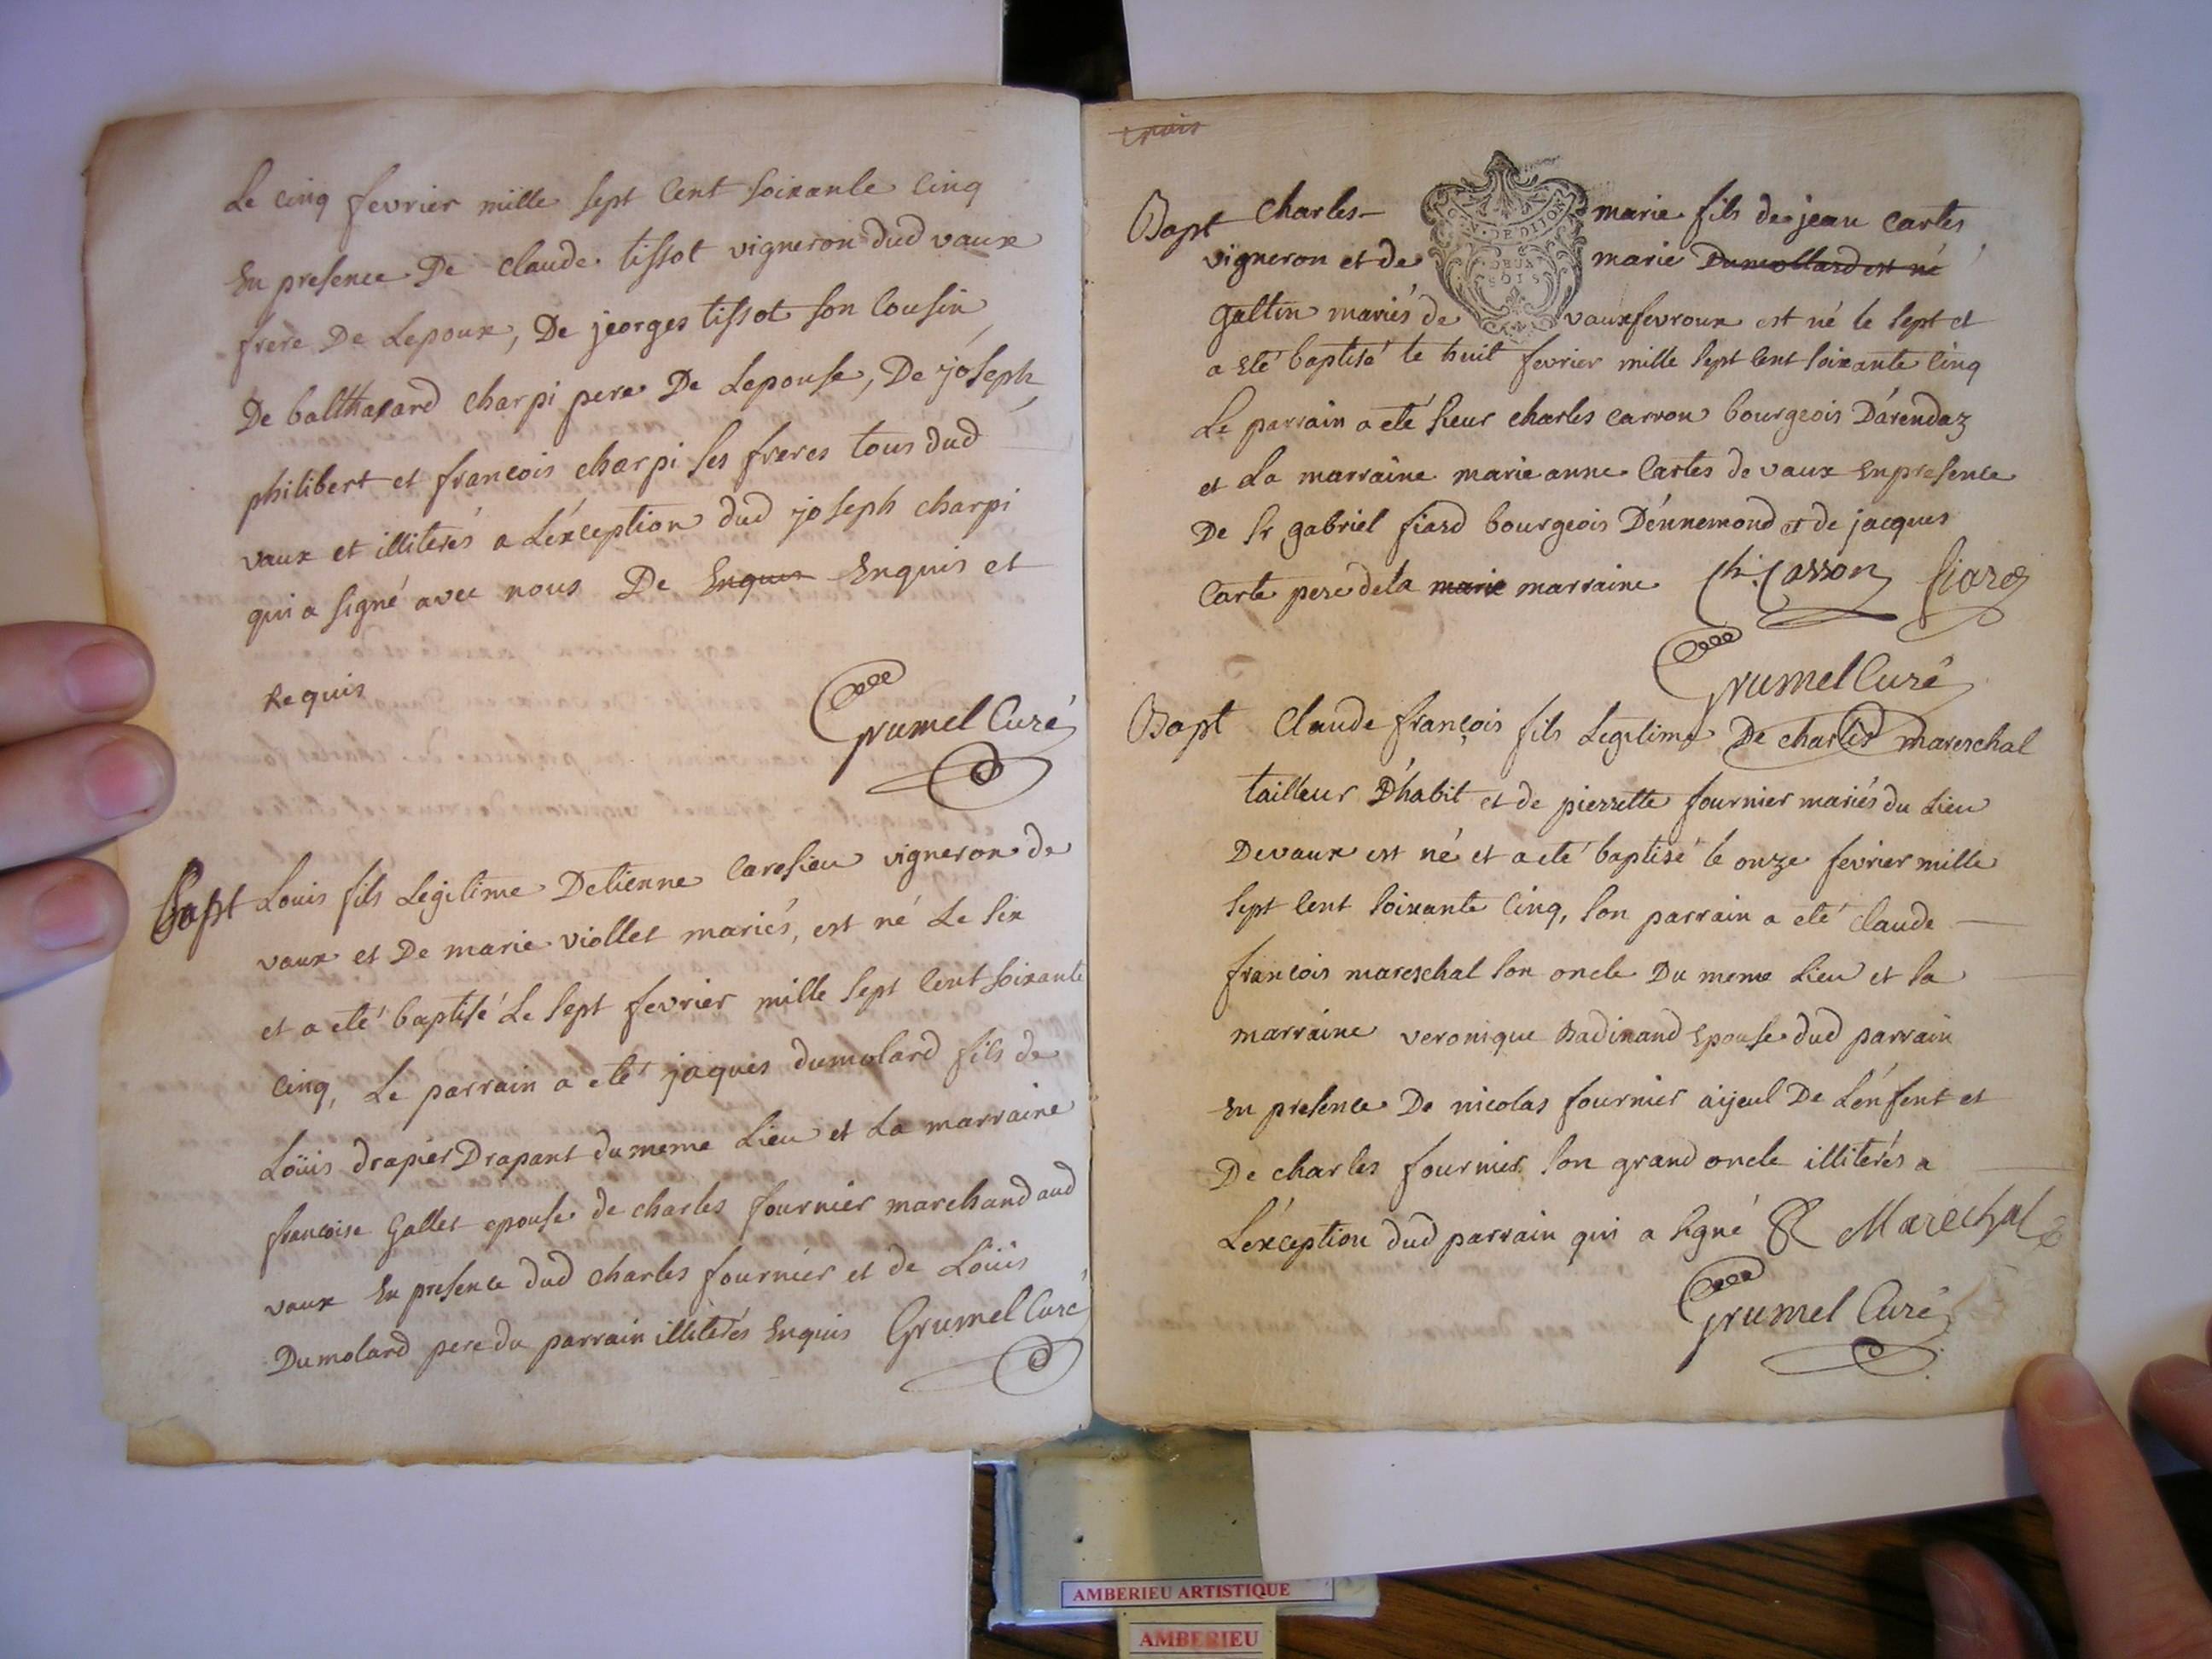 Le cinq fevrier mille sept cent soixante cinq
En presence De claude tissot vigneron dud vaux
frere De Lepoux, De jeorges tissot son cousin
De balthazard charpi pere De Lepouse, De joseph
philibert et francois charpi ses freres tous dud
vaux et illiterés a L'éxception dud joseph charpi
qui a signé avec nous De Enquis Enquis et
Requis
Grumel Curé
Bapt Louis fils Legitime Detienne Caresieu vigneron de
vaux et De marie viollet mariés, est né Le six
et a eté baptisé Le sept fevrier mille sept cent soixante
cinq, Le parrain a eté jaques dumolard fils de
Loüis drapier Drapant du meme Lieu et La marraine
francoise Gallet epouse de charles fournier marchand aud
vaux En presence dud charles fournier et de Loüis
Dumolard pere du parrain illiterés Enquis Grumel Curé
trois
Bapt Charles marie fils de jean Cartes
GEN. DE DIJON
DEUX SOLS
vigneron et de marie Dumollard est né
galtin mariés de vauxfevroux est né le sept et
a Eté baptisé le huit fevrier mille sept cent soixante cinq
Le parrain a eté sieur charles carron bourgeois D'arendaz
et La marraine marie anne Cartes de vaux En presence
De Sr gabriel fiard bourgeois D'ennemond et de jacques
Carte pere dela marie marraine Ch. Carron fiard
Grumel Curé
Bapt Claude françois fils Legitime De charles mareschal
tailleur D'habit et de pierrette fournier mariés du Lieu
De vaux est né et a eté baptisé le onze fevrier mille
sept cent soixante cinq, son parrain a eté Claude
francois mareschal son oncle Du meme Lieu et sa
marraine veronique Badinand Epouse dud parrain
En presence De nicolas fournier aijeul De L'énfent et
De charles fournier son grand oncle illiterés a
L'éxception dud parrain qui a signé Marechal
Grumel Curé
AMBERIEU ARTISTIQUE
AMBERIEU